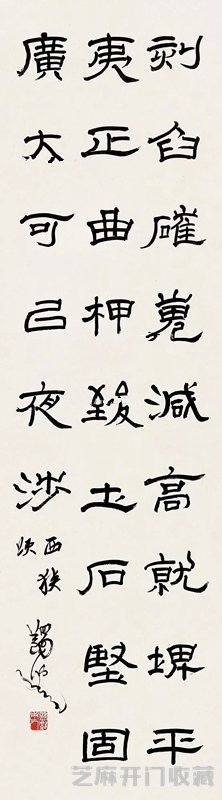 刻臽確嵬減高就埤平
夷正曲柙致土石堅固
廣大可已夜涉
西狹
頌
芝麻开门收藏